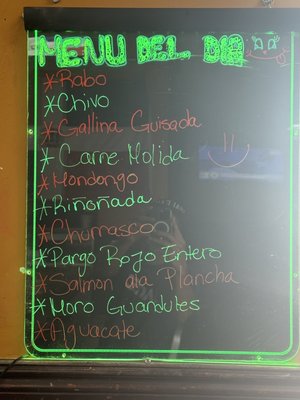 MENU DEL DIA
*Rabo
*Chivo
*Gallina Guisada
*Carne Molida
*Mondongo
*Riñoñada
*Churrasco
*Pargo Rojo Entero
*Salmon ala Plancha
*Moro Guandules
*Aguacate